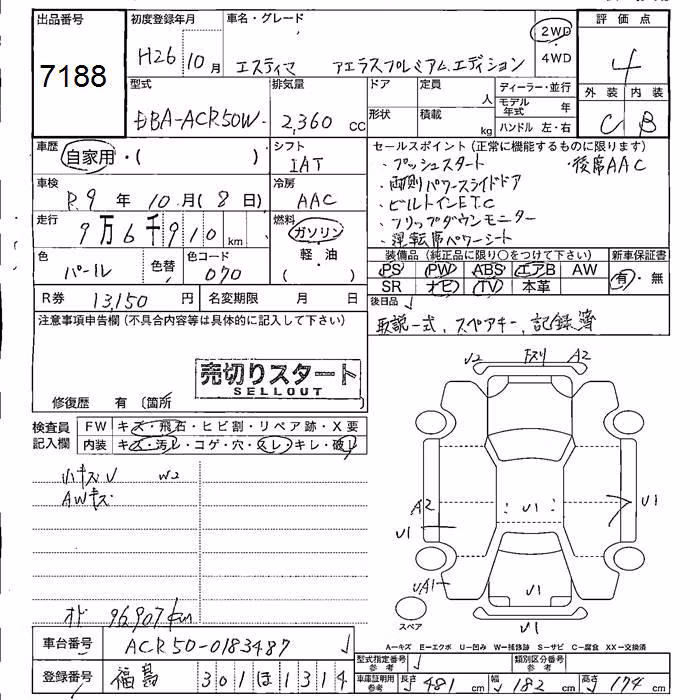 出品番号 初度登録年月 車名・グレード 2WD 4WD 評価点
7188 H26 10月 エスティマ アエラスプレミアムエディション 4
型式 排気量 ドア 定員 人 ディーラー・並行 外装 内装
DBA-ACR50W 2,360 cc 形状 積載 kg モデル年式 年 ハンドル 左・右 C B
車歴 自家用・( ) シフト IAT
セールスポイント(正常に機能するものに限ります)
・プッシュスタート ・後席AAC
・両側パワースライドドア
・ビルトインETC
・フリップダウンモニター
・運転席パワーシート
車検 R.9 年 10 月(8 日) 冷房 AAC
走行 9万6千910 km 燃料 ガソリン 軽・油
色 パール 色替 色コード 070
装備品(純正品に限り○をつけて下さい) 新車保証書
PS PW ABS エアB AW 有・無
SR ナビ TV 本革
R券 13,150 円 名変期限 月 日
後日品
取説一式、スペアキー、記録簿
注意事項申告欄(不具合内容等は具体的に記入して下さい)
売切りスタート
SELLOUT
修復歴 有〔箇所
検査員記入欄 FW キズ・飛石・ヒビ割・リペア跡・X要
内装 キズ・汚レ・コゲ・穴・スレ・キレ・破レ
小キズU W2
AWキズ
U2 A2
A2 U1 U1
U1
U1
UA1
U1
スペア
オド 96907km
A−キズ E−エクボ U−凹み W−補修跡 S−サビ C−腐食 XX−交換済
車台番号 ACR50-0183487
型式指定番号 参考 類別区分番号 参考
登録番号 福島 301 ほ 1314
車庫証明用 参考 長さ 481 cm 幅 182 cm 高さ 174 cm